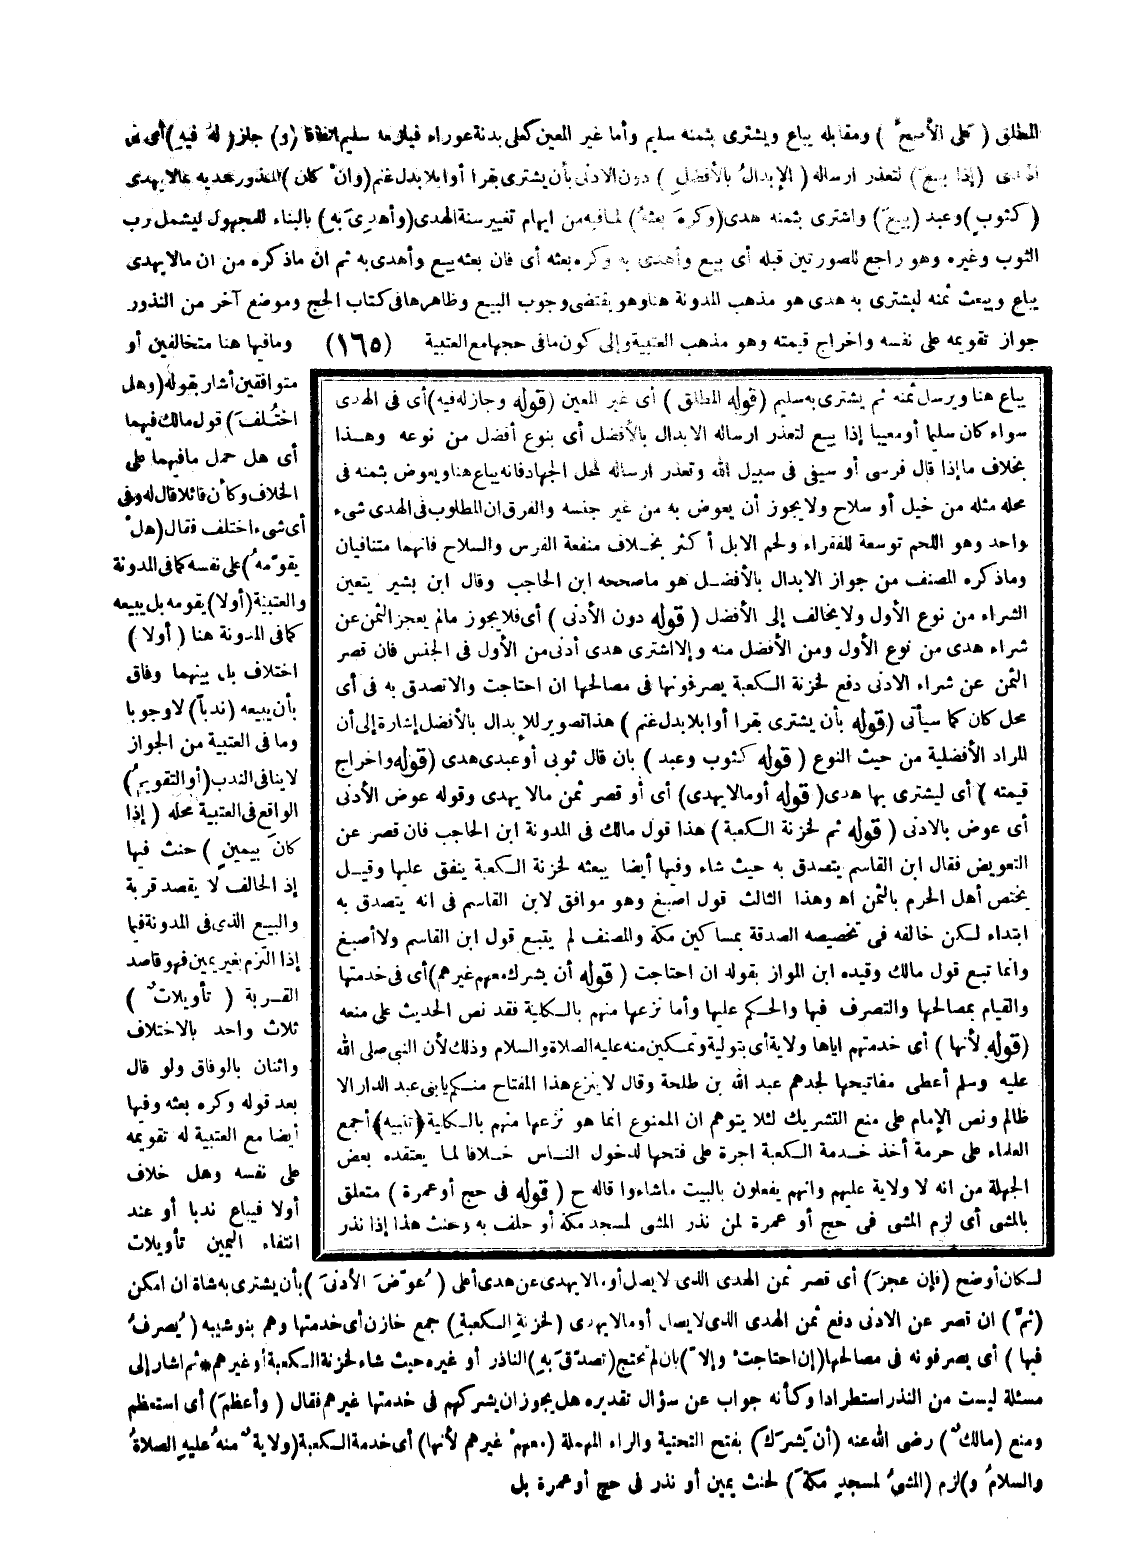 المطلق (على الأصح) ومقابله يباع ويشترى بثمنه سليم وأما غير المعين كعلى بدنة عوراء فيلزمه سليم اتفاقا (و) جاز (له فيه) أى فى
الهدى (إذا بيع) لتعذر ارساله (الإبدال بالأفضل) دون الادنى بأن يشترى بقرا أو ابلا بدل غنم (وان كان) المنذور هديه مما لا يهدى
(كثوب) وعبد (بيع) واشترى بثمنه هدى (وكره بعثه) لما فيه من ايهام تغيير سنة الهدى (وأهدى به) بالبناء للمجهول ليشمل رب
الثوب وغيره وهو راجع للصورتين قبله أى بيع وأهدى به وكره بعثه أى فان بعثه بيع وأهدى به ثم ان ما ذكره من ان مالا يهدى
يباع ويبعث ثمنه ليشترى به هدى هو مذهب المدونة هنا وهو يقتضى وجوب البيع وظاهرها فى كتاب الحج وموضع آخر من النذور
جواز تقويمه على نفسه واخراج قيمته وهو مذهب العتبية وإلى كون ما فى حجها مع العتبية (١٦٥) وما فيها هنا متخالفين أو
متوافقين أشار بقوله (وهل
اختلف) قول مالك فيهما
أى هل حمل ما فيهما على
الخلاف وكأن قائلا قال له وفى
أى شىء اختلف فقال (هل
يقومه) على نفسه كما فى المدونة
والعتبية (أولا) يقومه بل يبيعه
كما فى المدونة هنا (أولا)
اختلاف بل بينهما وفاق
بأن يبيعه (ندبا) لا وجوبا
وما فى العتبية من الجواز
لا ينافى الندب (أو التقويم)
الواقع فى العتبية محله (إذا
كان بيمين) حنث فيها
إذ الحالف لا يقصد قربة
والبيع الذى فى المدونة فيما
إذا التزم بغير يمين فهو قاصد
القربة (تأويلات)
ثلاث واحد بالاختلاف
واثنان بالوفاق ولو قال
بعد قوله وكره بعثه وفيها
أيضا مع العتبية له تقويمه
على نفسه وهل خلاف
أولا فيباع ندبا أو عند
انتفاء اليمين تأويلات
لكان أوضح (فإن عجز) أى قصر ثمن الهدى الذى لا يصل أو مالا يهدى عن هدى أعلى (عوض الأدنى) بأن يشترى به شاة ان امكن
(ثم) ان قصر عن الادنى دفع ثمن الهدى الذى لا يصل أو مالا يهدى (لخزنة الكعبة) جمع خازن أى خدمتها وهم بنو شيبه (يصرف
فيها) أى يصرفونه فى مصالحها (إن احتاجت وإلا) بان لم تحتج (تصدق به) الناذر أو غيره حيث شاء لخزنة الكعبة أو غيرهم * ثم اشار إلى
مسئلة ليست من النذر استطرادا وكأنه جواب عن سؤال تقديره هل يجوز ان يشركهم فى خدمتها غيرهم فقال (وأعظم) أى استعظم
ومنع (مالك) رضى الله عنه (أن يشرك) بفتح التحتية والراء المهملة (معهم غيرهم لأنها) أى خدمة الكعبة (ولاية منه عليه الصلاة
والسلام و) لزم (المشى لمسجد مكة) لحنث يمين أو نذر فى حج أو عمرة بل
يباع هنا ويرسل ثمنه ثم يشترى به سليم (قوله المطلق) أى غير المعين (قوله وجاز له فيه) أى فى الهدى
سواء كان سليما أو معيبا إذا بيع لتعذر ارساله الابدال بالأفضل أى بنوع أفضل من نوعه وهذا
بخلاف ما إذا قال فرسى أو سيفى فى سبيل الله وتعذر ارساله لمحل الجهاد فانه يباع هنا ويعوض بثمنه فى
محله مثله من خيل أو سلاح ولا يجوز أن يعوض به من غير جنسه والفرق ان المطلوب فى الهدى شىء
واحد وهو اللحم توسعة للفقراء ولحم الابل أكثر بخلاف منفعة الفرس والسلاح فانهما متنافيان
وما ذكره المصنف من جواز الابدال بالأفضل هو ما صححه ابن الحاجب وقال ابن بشير يتعين
الشراء من نوع الأول ولا يخالف إلى الأفضل (قوله دون الأدنى) أى فلا يجوز ما لم يعجز الثمن عن
شراء هدى من نوع الأول ومن الأفضل منه وإلا اشترى هدى أدنى من الأول فى الجنس فان قصر
الثمن عن شراء الادنى دفع لخزنة الكعبة يصرفونها فى مصالحها ان احتاجت والا تصدق به فى أى
محل كان كما سيأتى (قوله بأن يشترى بقرا أو ابلا بدل غنم) هذا تصوير للإبدال بالأفضل إشارة إلى أن
المراد الأفضلية من حيث النوع (قوله كثوب وعبد) بان قال ثوبى أو عبدى هدى (قوله واخراج
قيمته) أى ليشترى بها هدى (قوله أو مالا يهدى) أى أو قصر ثمن مالا يهدى وقوله عوض الأدنى
أى عوض بالادنى (قوله ثم لخزنة الكعبة) هذا قول مالك فى المدونة ابن الحاجب فان قصر عن
التعويض فقال ابن القاسم يتصدق به حيث شاء وفيها أيضا يبعثه لخزنة الكعبة ينفق عليها وقيل
يختص أهل الحرم بالثمن اه وهذا الثالث قول اصبغ وهو موافق لابن القاسم فى انه يتصدق به
ابتداء لكن خالفه فى تخصيصه الصدقة بمساكين مكة والمصنف لم يتبع قول ابن القاسم ولا أصبغ
وانما تبع قول مالك وقيده ابن المواز بقوله ان احتاجت (قوله أن يشرك معهم غيرهم) أى فى خدمتها
والقيام بمصالحها والتصرف فيها والحكم عليها وأما نزعها منهم بالكلية فقد نص الحديث على منعه
(قوله لأنها) أى خدمتهم اياها ولاية أى بتولية وتمكين منه عليه الصلاة والسلام وذلك لأن النبى صلى الله
عليه وسلم أعطى مفاتيحها لجدهم عبد الله بن طلحة وقال لا ينزع هذا المفتاح منكم يا بنى عبد الدار الا
ظالم ونص الإمام على منع التشريك لئلا يتوهم ان الممنوع انما هو نزعها منهم بالكلية (تنبيه) أجمع
العلماء على حرمة أخذ خدمة الكعبة اجرة على فتحها لدخول الناس خلافا لما يعتقده بعض
الجهلة من انه لا ولاية عليهم وانهم يفعلون بالبيت ما شاءوا قاله ح (قوله فى حج أو عمرة) متعلق
بالمشى أى لزم المشى فى حج أو عمرة لمن نذر المشى لمسجد مكة أو حلف به وحنث هذا إذا نذر